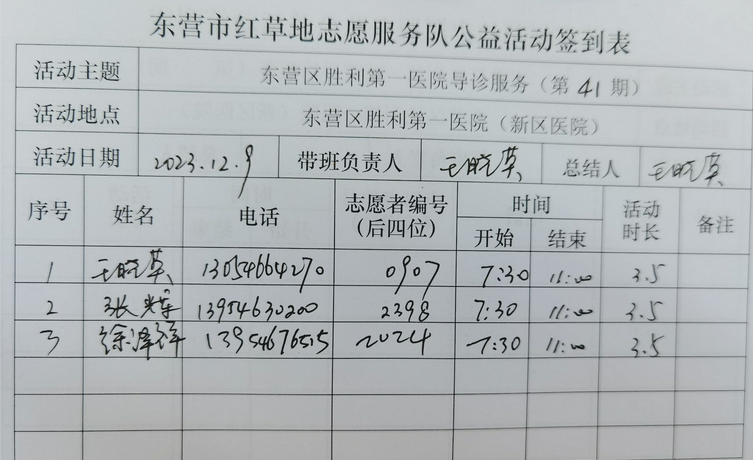 东营市红草地志愿服务队公益活动签到表
活动主题 东营区胜利第一医院导诊服务（第 41 期）
活动地点 东营区胜利第一医院（新区医院）
活动日期 2023.12.9 带班负责人 王晓英 总结人 王晓英
序号 姓名 电话 志愿者编号（后四位） 时间 开始 结束 活动时长 备注
1 王晓英 13054664270 0907 7:30 11:00 3.5
2 张辉 13954630200 2398 7:30 11:00 3.5
3 徐泽祥 13954676515 2024 7:30 11:00 3.5